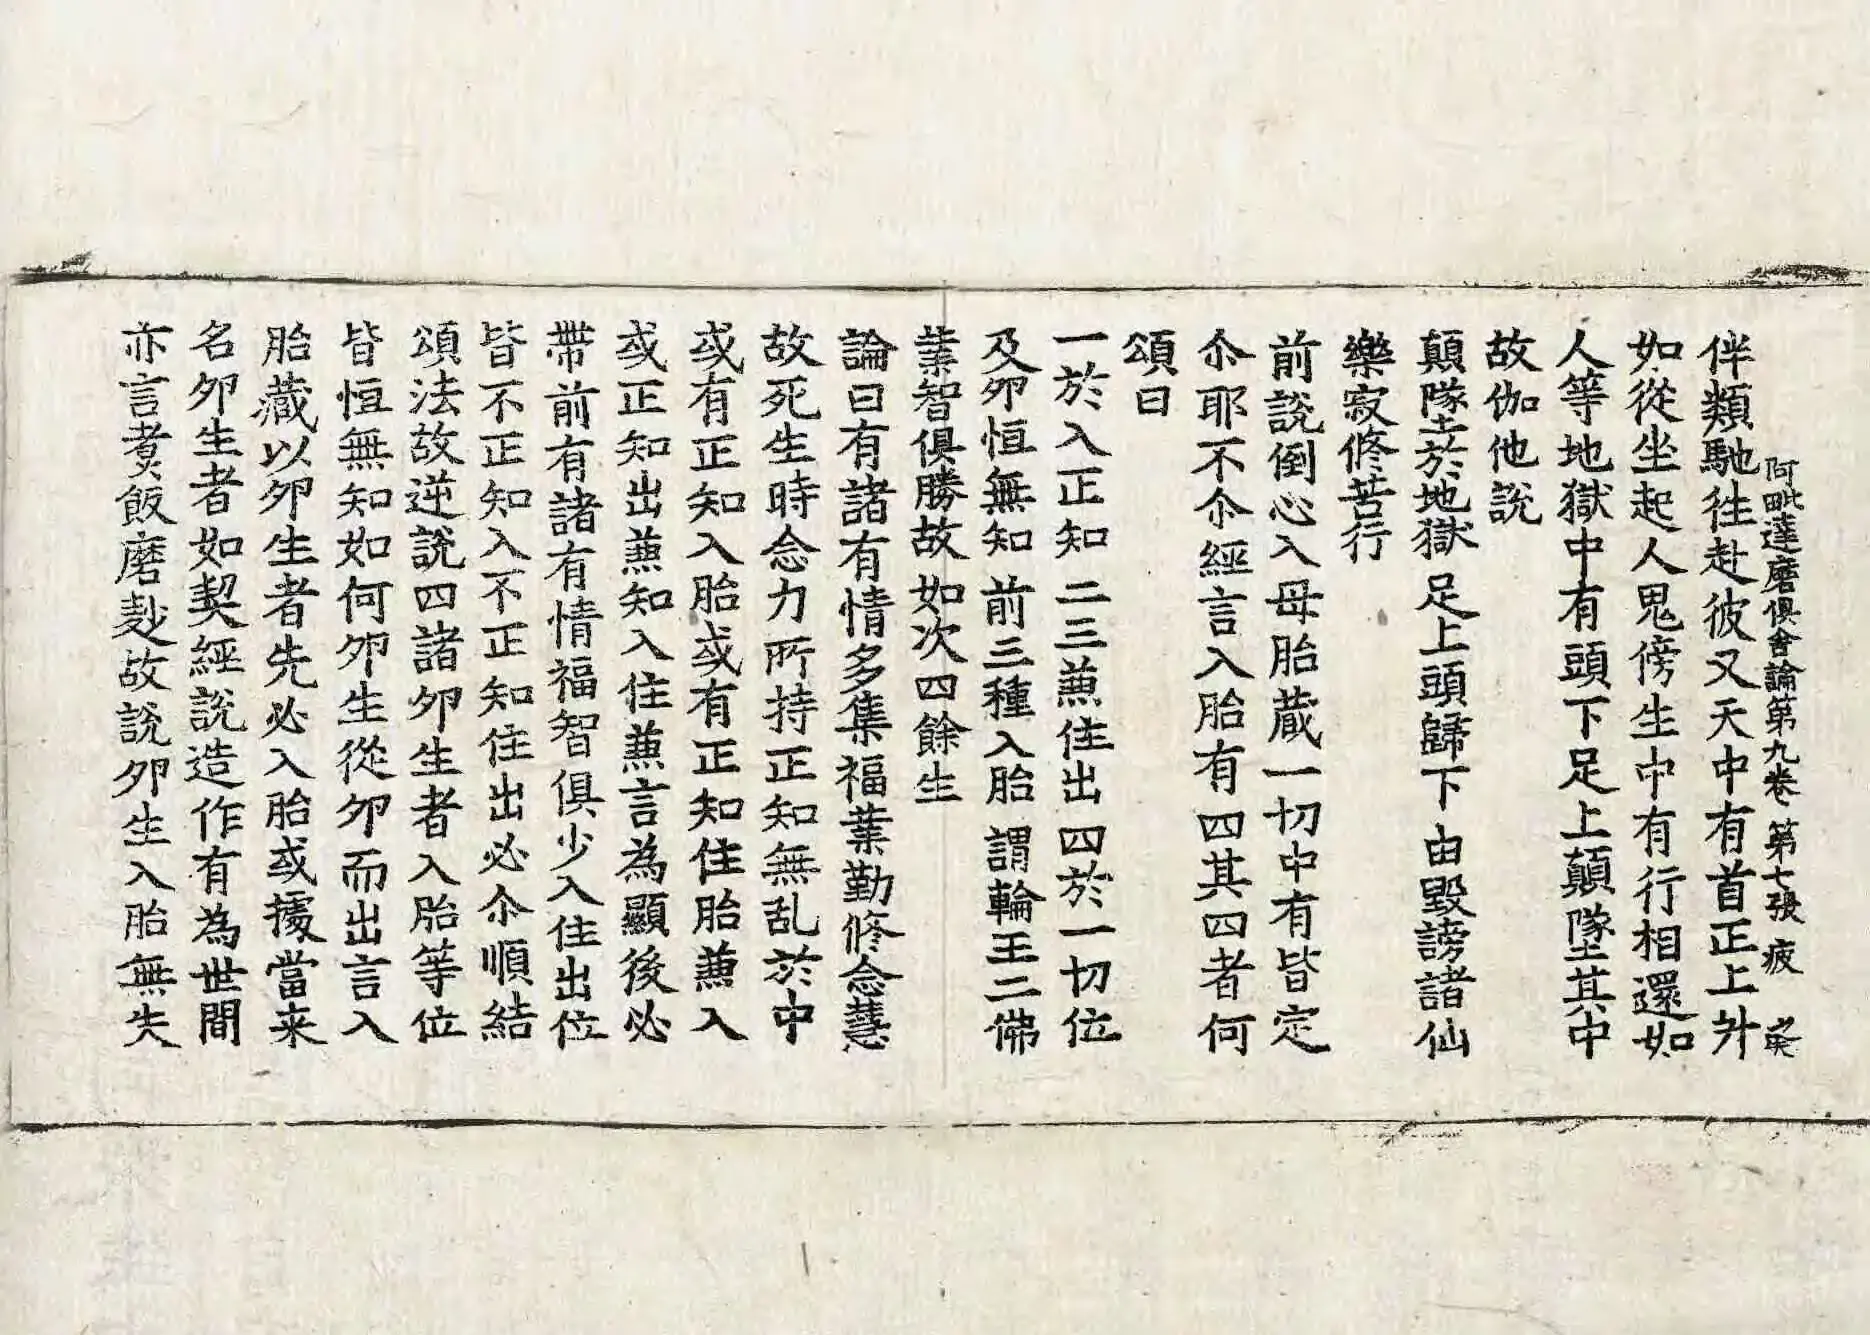 阿毗達磨俱舍論第九卷 第七張 疲
伴類馳往赴彼又天中有首正上升
如從坐起人鬼傍生中有行相還如
人等地獄中有頭下足上顛墜其中
故伽他說
顛墜於地獄 足上頭歸下 由毀謗諸仙
樂寂修苦行
前說倒心入母胎藏一切中有皆定
尒耶不尒經言入胎有四其四者何
頌曰
一於入正知 二三兼住出 四於一切位
及卵恒無知 前三種入胎 謂輪王二佛
業智俱勝故 如次四餘生
論曰有諸有情多集福業勤修念慧
故死生時念力所持正知無乱於中
或有正知入胎或有正知住胎兼入
或正知出兼知入住兼言為顯後必
帶前有諸有情福智俱少入住出位
皆不正知入不正知住出必尒順結
頌法故逆說四諸卵生者入胎等位
皆恒無知如何卵生從卵而出言入
胎藏以卵生者先必入胎或據當来
名卵生者如契經說造作有為世間
亦言煑飯磨麨故說卵生入胎無失